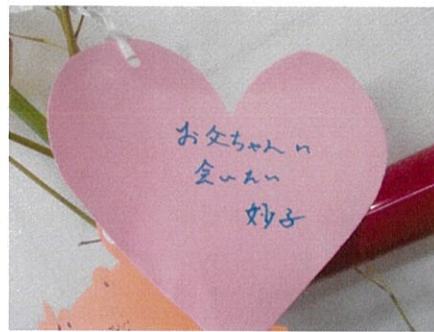 お父ちゃんに
会いたい
妙子